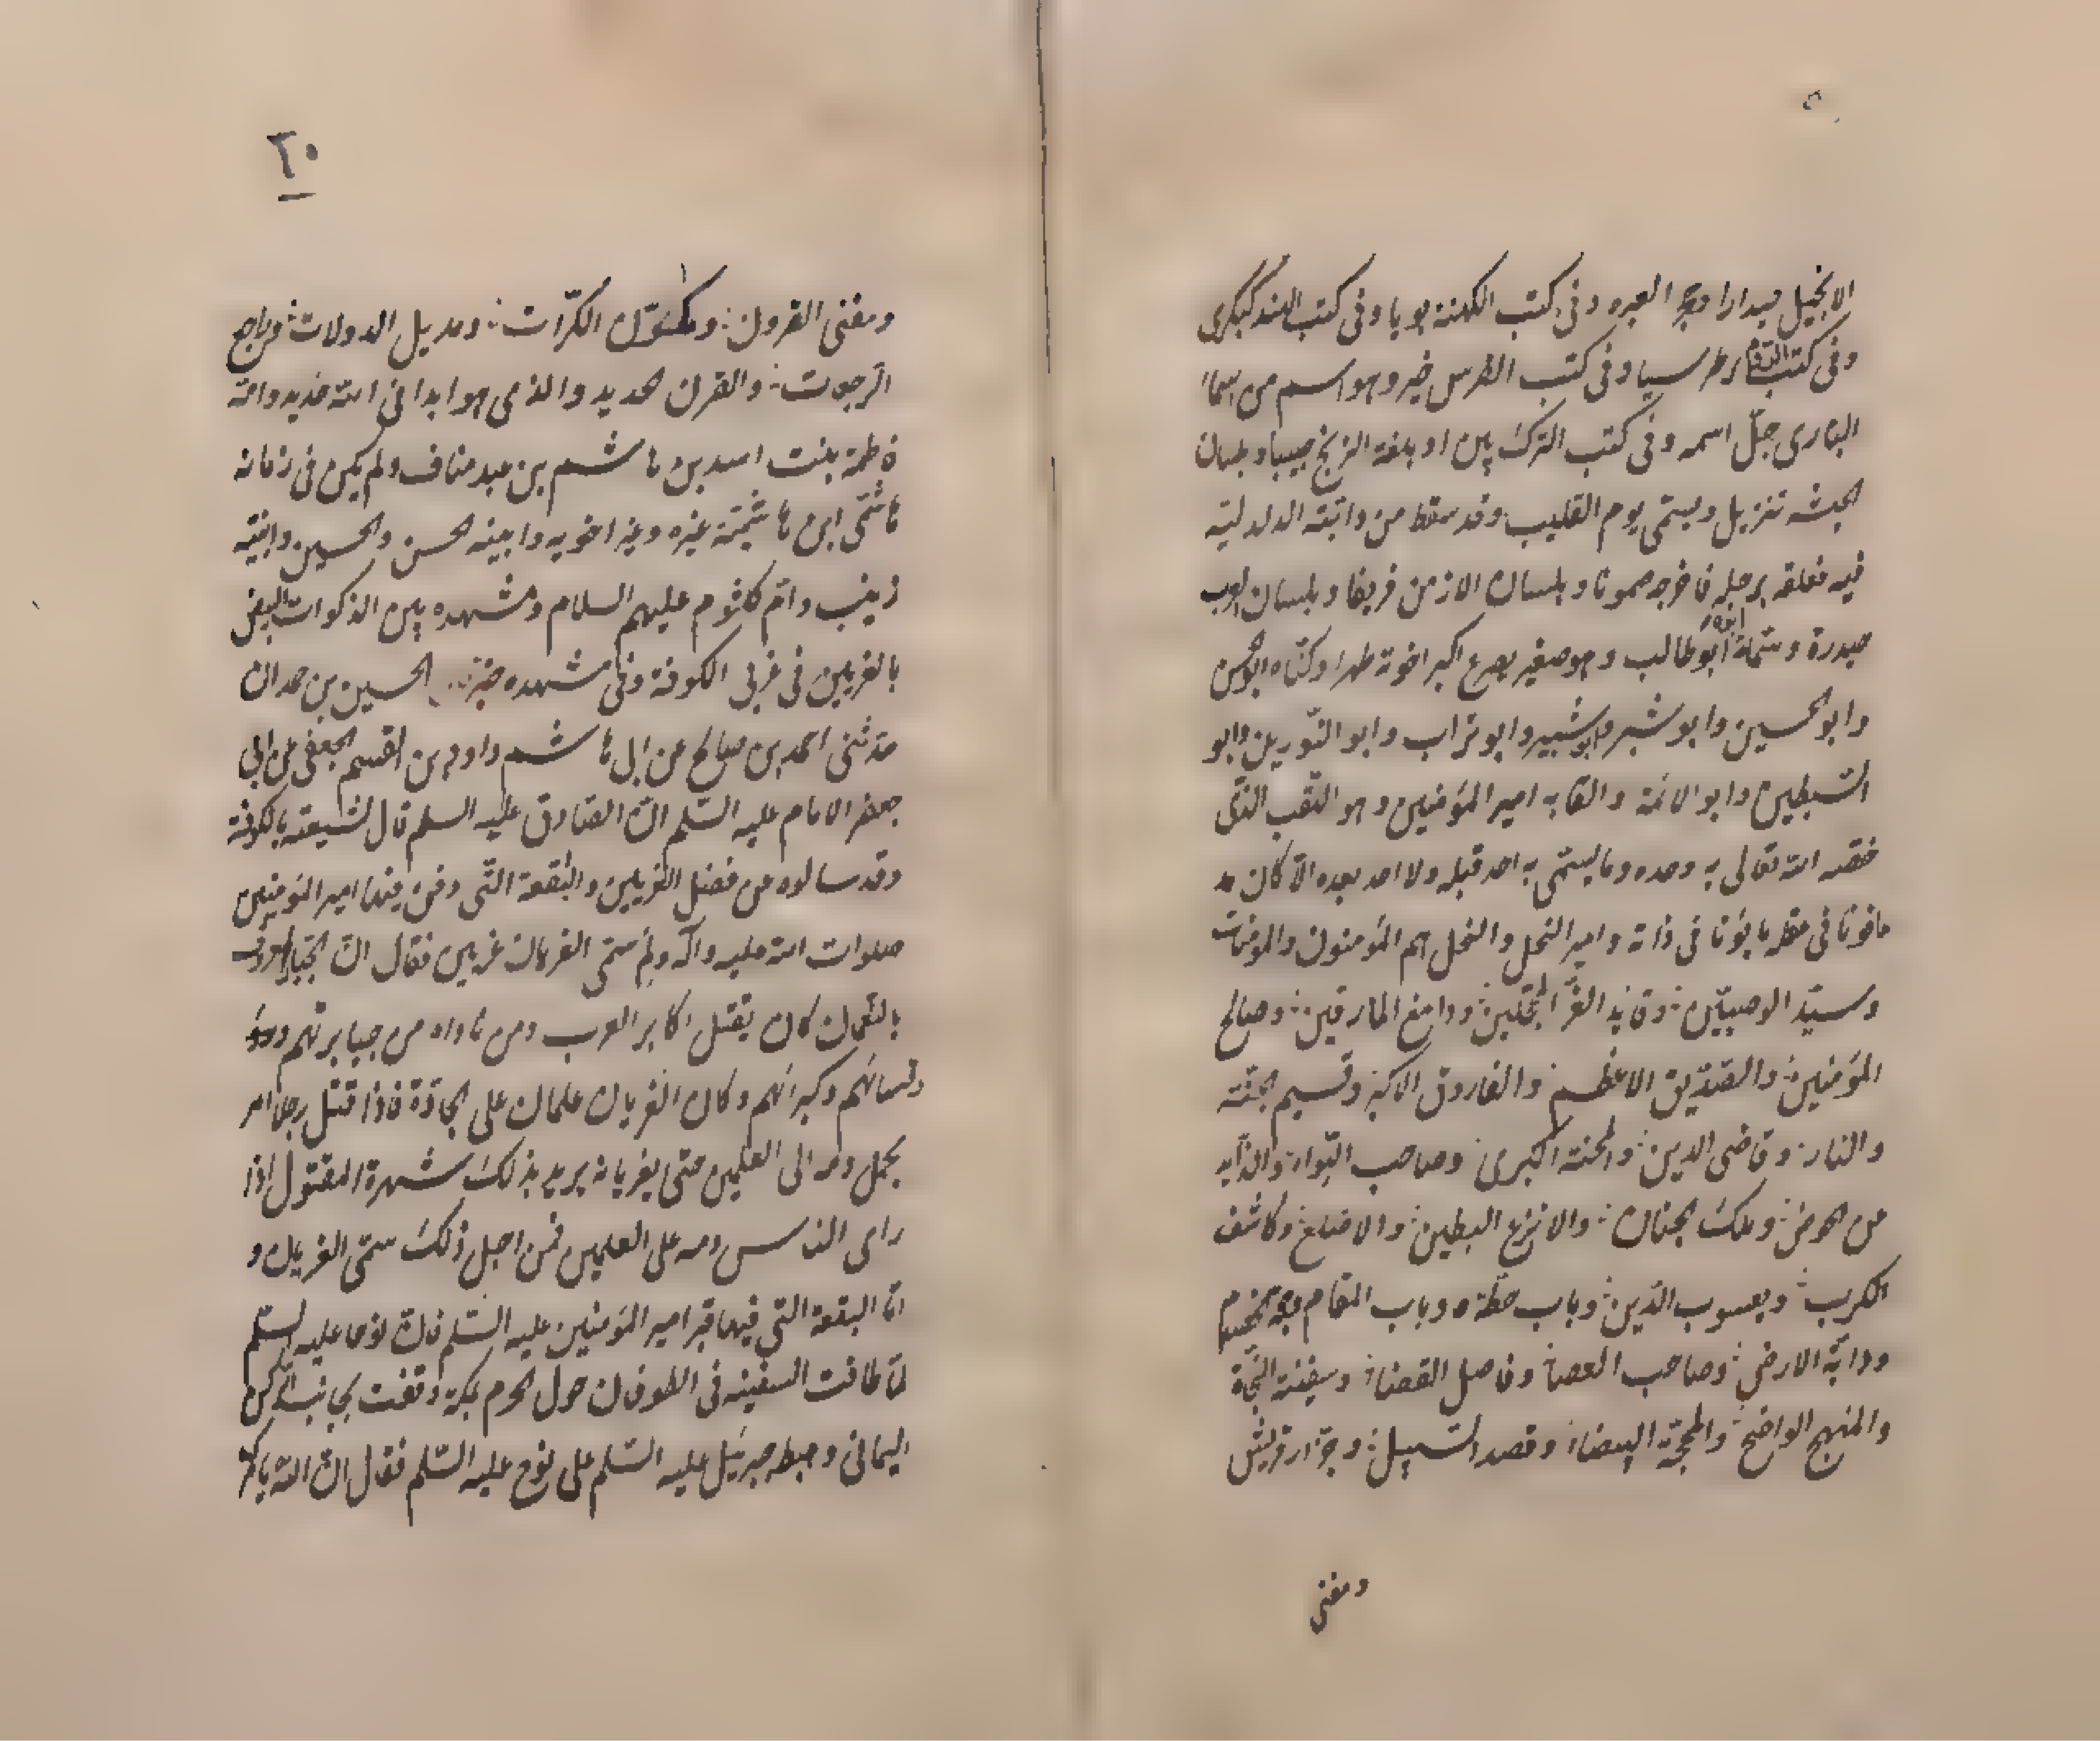 الانجيل حيدارا وهو العبره وفى كتب الكهنة بويا وفى كتب الهند كبكرى
وفى كتب الروم بطرسيا وفى كتب الفرس خيرو هو اسم من اسماء
البارى جل اسمه وفى كتب الترك بين او بلغة الزنج حيبا وبلسان
الحبشه تنزيل ويسمى يوم القليب وقد سقط من دابته الدلدليه
فيه فعلقه برجله فاخرجه ميمونا وبلسان الارمن فريقا وبلسان العرب
حيدرة وسماه ابوه ابو طالب وهو صغير يصرع اكبر اخوته ظهرا وكناه ابو الحسن
وابو الحسين وابو شبر وابو شبير وابو تراب وابو النورين وابو
السبطين وابو الائمة والقابه امير المؤمنين وهو اللقب الذى
خصه الله تعالى به وحده وما يسمى به احد قبله ولا احد بعده الا كان
مافونا فى عقله مابونا فى ذاته وامير النحل والنحل هم المؤمنون والمؤمنات
وسيد الوصيين وقايد الغر المحجلين ودامغ المارقين وصالح
المؤمنين والصديق الاعظم والفاروق الاكبر وقسيم الجنة
والنار وقاضى الدين والمحنة الكبرى وصاحب اللواء والذايد
عن الحوض وملك الجنان والانزع البطين والاضلع وكاشف
الكرب ويعسوب الدين وباب حطة وباب المقام وحجة الخصام
ودابة الارض وصاحب العصا وفاصل القضاء وسفينة النجاة
والمنهج الواضح والمحجة البيضاء وقصد السبيل وجزار قريش
ومفنى
٢٠
ومفنى القرون ومكرر الكرات ومديل الدولات وراجع
الرجعات والقرن الحديد والذى هو ابدا فى الله جديد وامه
فاطمة بنت اسد بن هاشم بن عبد مناف ولم يكن فى زمانه
هاشمى ابن هاشمية غيره وغير اخويه وابنيه الحسن والحسين وابنتيه
زينب وام كلثوم عليهم السلام ومشهده بين الذكوات البيض
بالغريين فى غربى الكوفة وفى مشهده خبر الحسين بن حمدان
حدثنى احمد بن صالح عن ابى هاشم داود بن القسم الجعفى عن ابى
جعفر الامام عليه السلم ان الصادق عليه السلم قال لشيعته بالكوفة
وقد سالوه عن فضل الغريين والبقعة التى دفن فيها امير المؤمنين
صلوات الله عليه واله ولم سمى الغريان غريين فقال ان الجبار المعروف
بالنعمان كان يقتل اكابر العرب ومن ناواه من جبابرتهم
وكبرائهم وكان الغريان علمان على الجادة فاذا قتل رجلا امر
بحمل دمه الى العلمين حتى يغريانه يريد بذلك شهرة المقتول اذا
راى الناس دمه على العلمين فمن اجل ذلك سمى الغريان و
اما البقعة التى فيها قبر امير المؤمنين عليه السلم فان نوحا عليه السلم
لما طافت السفينه فى الطوفان حول الحرم بمكة وقفت بجانب الركن
اليمانى وهبط جبرئيل عليه السلم على نوح عليه السلم فقال ان الله